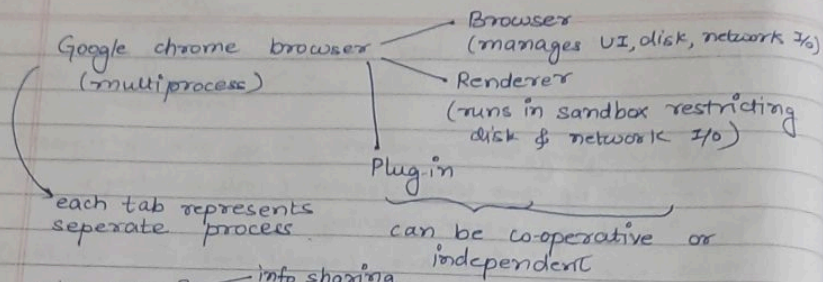 Browser
Google chrome browser
(manages UI, disk, network I/o)
(multiprocess)
Renderer
(runs in sandbox restricting
disk & network I/O)
Plug-in
each tab represents
seperate process
can be co-operative or
independent
info sharing